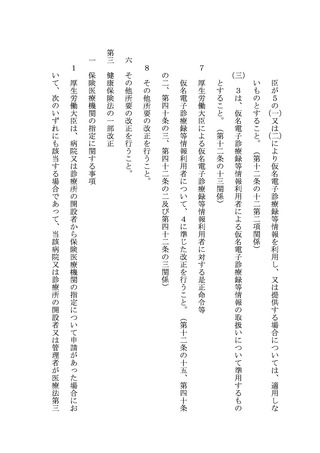 臣が５の㈠又は㈡により仮名電子診療録等情報を利用し、又は提供する場合については、適用しな
いものとすること。（第十二条の十二第二項関係）
㈢　３は、仮名電子診療録等情報利用者による仮名電子診療録等情報の取扱いについて準用するもの
とすること。（第十二条の十三関係）
７　厚生労働大臣による仮名電子診療録等情報利用者に対する是正命令等
仮名電子診療録等情報利用者について、４に準じた改正を行うこと。（第十二条の十五、第四十条
の二、第四十条の三、第四十二条の二及び第四十二条の三関係）
８　その他所要の改正を行うこと。
六　その他所要の改正を行うこと。
第三　健康保険法の一部改正
一　保険医療機関の指定に関する事項
１　厚生労働大臣は、病院又は診療所の開設者から保険医療機関の指定について申請があった場合にお
いて、次のいずれにも該当する場合であって、当該病院又は診療所の開設者又は管理者が医療法第三